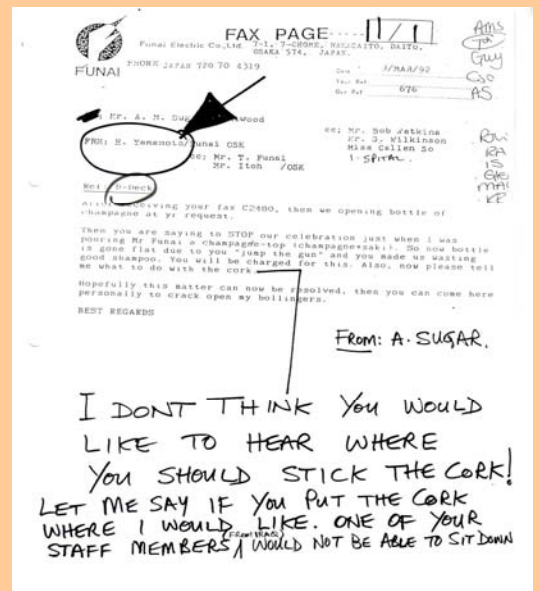 FAX PAGE 1/1
Funai Electric Co., Ltd. 7-1, 7-CHOME, NAKAGAITO, DAITO,
OSAKA 574, JAPAN.
FUNAI
PHONE JAPAN 720 70 4319
Date 3/MAR/92
Your Ref
Our Ref 676
Ams
Guy
AS
Mr. A. M. Sug wood
FRM: H. Yamamoto/Funai OSK
cc; Mr. T. Funai
Mr. Itoh /OSK
cc; Mr. Bob Watkins
Mr. G. Wilkinson
Miss Callen So
I. SPITAL.
Re: D-Deck
After receiving your fax C2400, then we opening bottle of
champagne at yr request.
Then you are saying to STOP our celebration just when I was
pouring Mr Funai a champagne-top (champagne+saki). So now bottle
is gone flat due to you "jump the gun" and you made us wasting
good shampoo. You will be charged for this. Also, now please tell
me what to do with the cork.
Hopefully this matter can now be resolved, then you can come here
personally to crack open my bollingers.
BEST REGARDS
FROM: A. SUGAR.
I DONT THINK YOU WOULD
LIKE TO HEAR WHERE
YOU SHOULD STICK THE CORK!
LET ME SAY IF YOU PUT THE CORK
WHERE I WOULD LIKE. ONE OF YOUR
STAFF MEMBERS (FROM IRAQ) WOULD NOT BE ABLE TO SIT DOWN